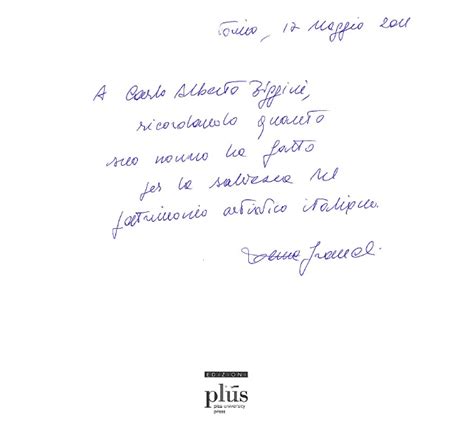 Torino, 17 Maggio 2011
A Carlo Alberto Biggini,
ricordando quanto
suo nonno ha fatto
per la salvezza del
patrimonio artistico italiano.
EDIZIONI
plus
pisa university
press